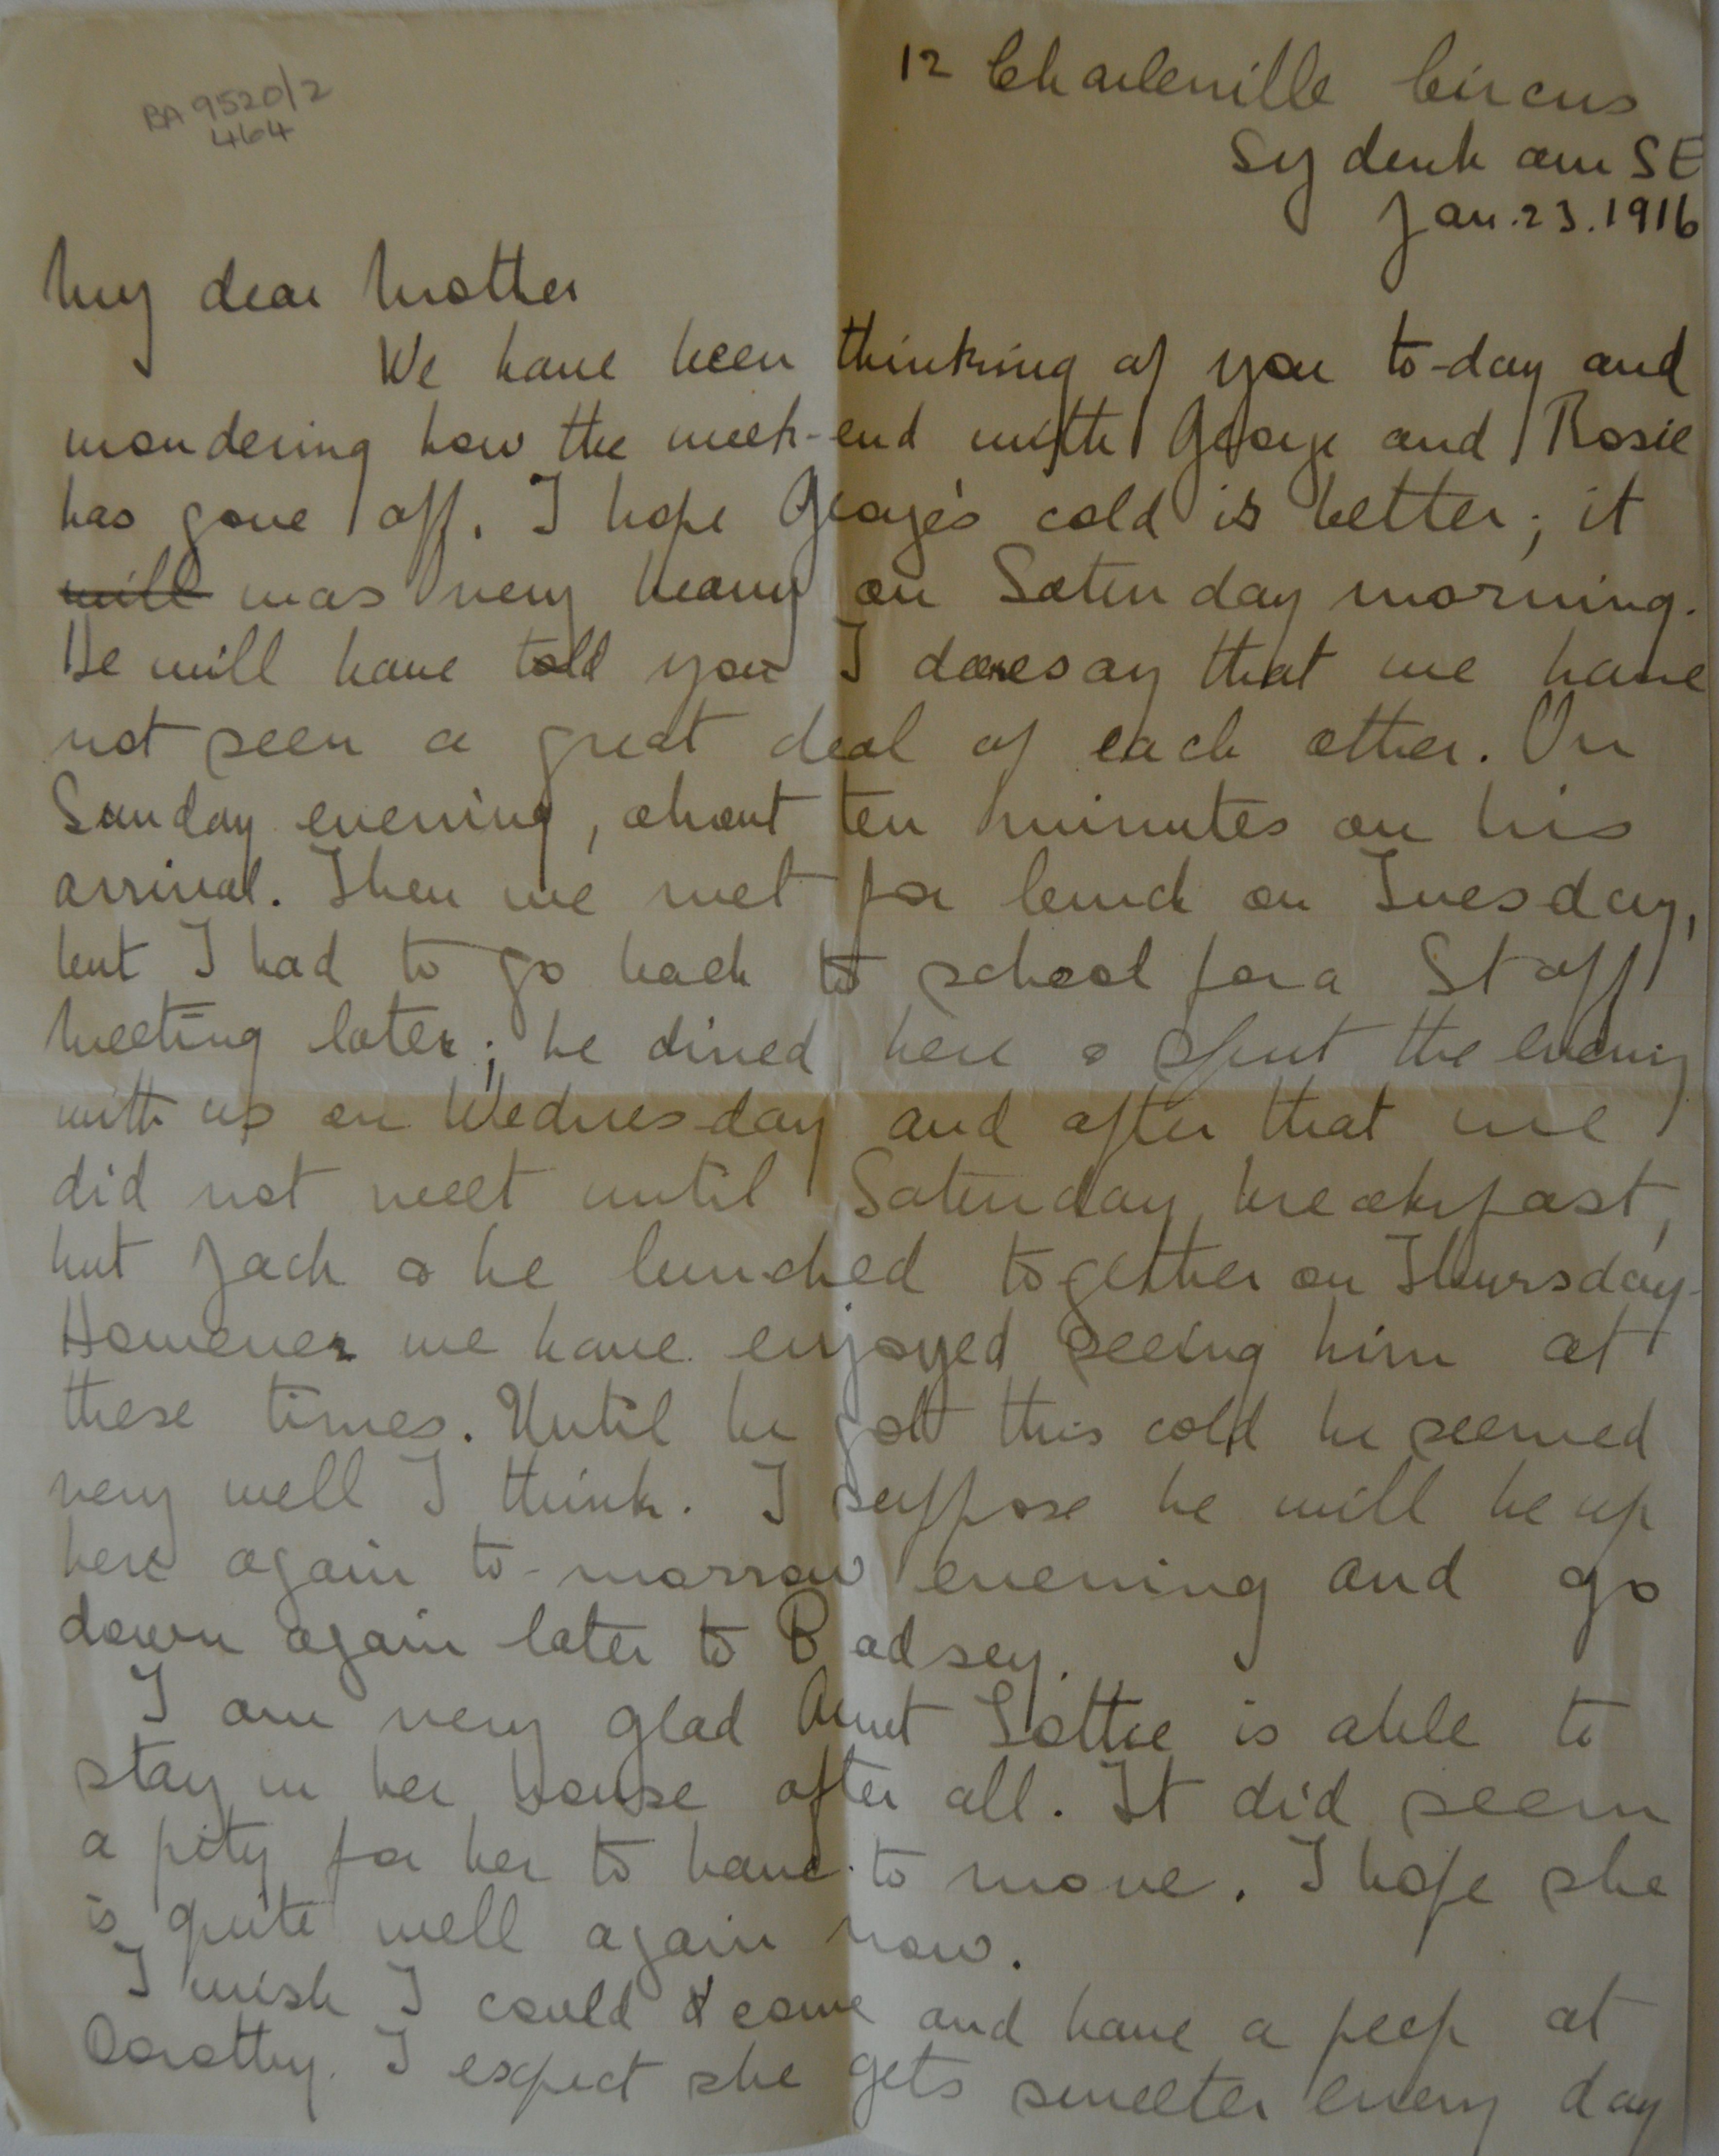 BA 9520/2
464
12 Charleville Circus
Sydenham SE
Jan. 23. 1916
My dear Mother
We have been thinking of you to-day and
wondering how the week-end with George and Rosie
has gone off. I hope George's cold is better; it
will was very heavy on Saturday morning.
He will have told you I daresay that we have
not seen a great deal of each other. On
Sunday evening, about ten minutes on his
arrival. Then we met for lunch on Tuesday,
but I had to go back to school for a Staff
Meeting later; he dined here & spent the evening
with us on Wednesday and after that we
did not meet until Saturday breakfast,
but Jack & he lunched together on Thursday.
However we have enjoyed seeing him at
these times. Until he got this cold he seemed
very well I think. I suppose he will be up
here again to-morrow evening and go
down again later to Badsey.
I am very glad Aunt Lottie is able to
stay in her house after all. It did seem
a pity for her to have to move. I hope she
is quite well again now.
I wish I could come and have a peep at
Dorothy. I expect she gets sweeter every day